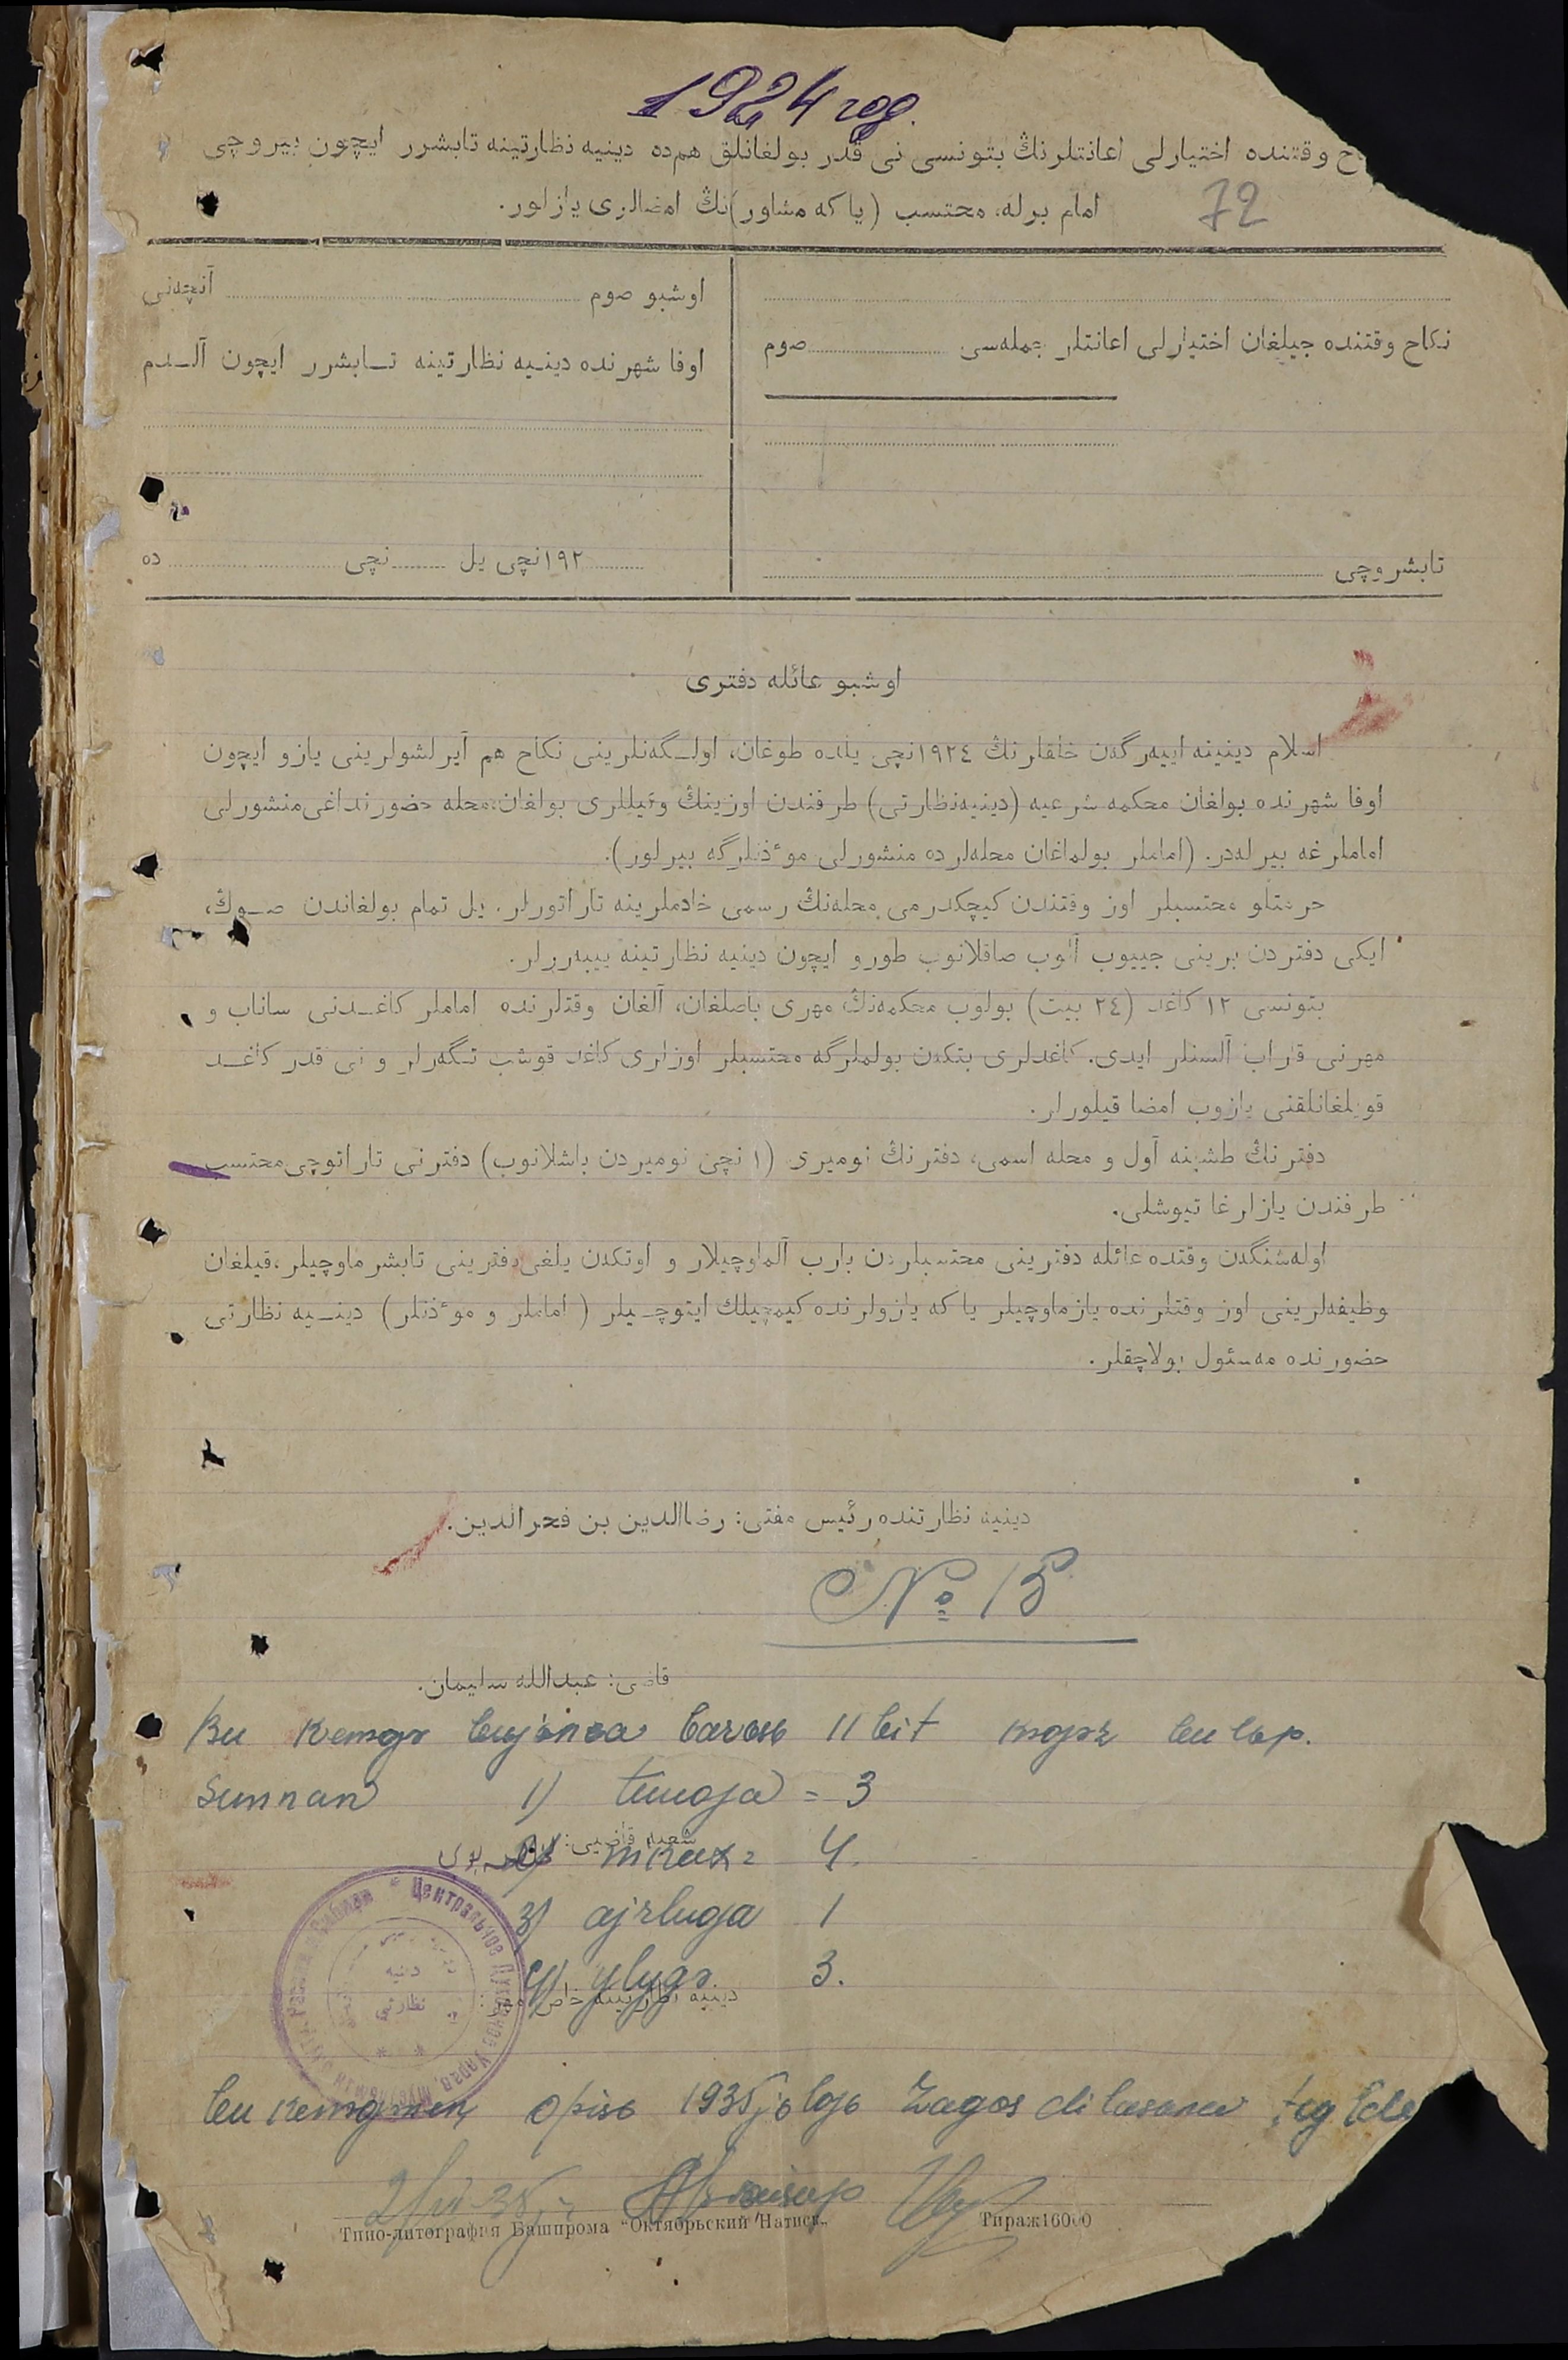 1924 год.
ح وقتنده اختیارلی اعانتلرنڭ بتونسی نی قدر بولغانلق هم‌ده دینیه نظارتینه تابشرر ایچون بیروچی
امام برله، محتسب (یا که مشاور)نڭ امضالری یازلور.
72
نکاح وقتنده جیلغان اختیارلی اعانتلر جمله‌سی ........ صوم
تابشروچی
اوشبو صوم ........ آقچه‌نی
اوفا شهرنده دینیه نظارتینه تابشرر ایچون آلدم
١٩٢ نچی یل ........ نچی ........ ده
اوشبو عائله دفتری
اسلام دینینه اییه‌رگه‌ن خلقلرنڭ ١٩٢٤نچی یلده طوغان، اولگه‌نلرینی نکاح هم آیرلشولرینی یازو ایچون
اوفا شهرنده بولغان محکمه شرعیه (دینیه‌نظارتی) طرفندن اوزینڭ وکیللری بولغان، محله حضورنداغی منشورلی
اماملرغه بیرله‌در. (اماملر بولماغان محله‌لرده منشورلی موٴذنلرگه بیرلور).
حرمتلو محتسبلر اوز وقتندن کیچکدرمی محله‌نڭ رسمی خادملرینه تاراتورلر. یل تمام بولغاندن صوڭ،
ایکی دفتردن برینی جییوب آلوب صاقلانوب طورو ایچون دینیه نظارتینه ییبه‌رورلر.
بتونسی ١٢ کاغد (٢٤ بیت) بولوب محکمه‌نڭ مهری باصلغان، آلغان وقتلرنده اماملر کاغدنی ساناب و
مهرنی قاراب آلسنلر ایدی. کاغدلری بتکدن بولملرگه محتسبلر اوزلری کاغد قوشب تگه‌رلر و نی قدر کاغد
قویلغانلقنی یازوب امضا قیلورلر.
دفترنڭ طشینه آول و محله اسمی، دفترنڭ نومیری (١ نچی نومیردن باشلانوب) دفترنی تاراتوچی محتسب
طرفندن یازارغا تیوشلی.
اوله‌شنگدن وقتده عائله دفترینی محتسبلردن بارب آلماوچیلار و اوتکدن یلغی دفترینی تابشرماوچیلر، قیلغان
وظیفه‌لرینی اوز وقتلرنده یازماوچیلر یا که یازولرنده کیمچیلك ایتوچیلر (اماملر و موٴذنلر) دینیه نظارتی
حضورنده مه‌سئول بولاچقلر.
دینیه نظارتنده رئیس مفتی: رضاالدین بن فخرالدین.
№ 15
قاضی: عبدالله سلیمان.
Bu kenəgə bujьnca barьsь 11 bit kəgəz bulьp.
Sunnan 1) tuuoja = 3
شعبه قاضیی:
2) nikax = 4.
3) ajrluga 1
4) ylygə 3.
دینیه نظارتینه خاص مهر:
Центральное Духовное Управ.
دینیه
نظارتی
bu kenəgəneŋ opisь 1935 jьlgь Zagos
Типо-литография Башпрома "Октябрьский Натиск"
Тираж 16000